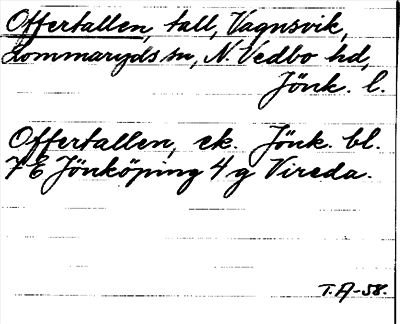 Offertallen, tall, Vagnsvik,
Lommaryds sn, N. Vedbo hd,
Jönk. l.
Offertallen, ek. Jönk. bl.
7 E Jönköping 4 g Vireda.
T.A-58.